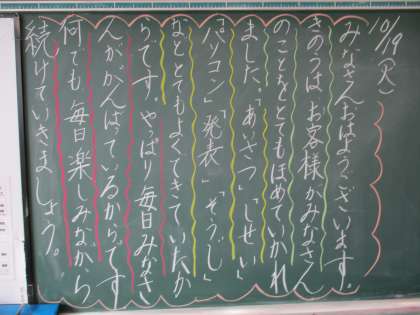 10/19(火)
みなさんおはようございます。
きのうは お客様がみなさん
のことをとてもほめていかれ
ました。「あいさつ」「しせい」
「パソコン」「発表」「そうじ」
などとてもよくできていたか
らです。やっぱり毎日みなさ
んががんばっているからです
何でも 毎日楽しみながら
続けていきましょう。